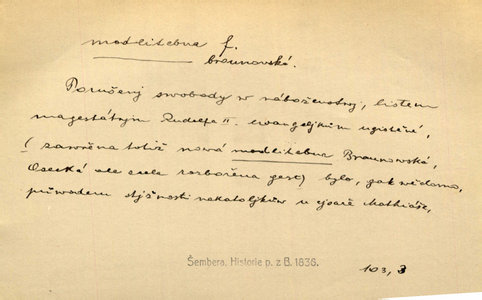 modlitebna f.
braunovská.
Porušený swobody w náboženstwj, listem
magestátnjm Rudolfa II. ewangeljkům ugištěné,
(zawřena totiž nowá modlitebna Braunowská,
Osecká ale cele rozbořena gest) bylo, jak wědomo,
půwodem stjžnosti nekatoljků u cjsaře Mathiáše,
Šembera, Historie p. z B. 1836.
103, 3